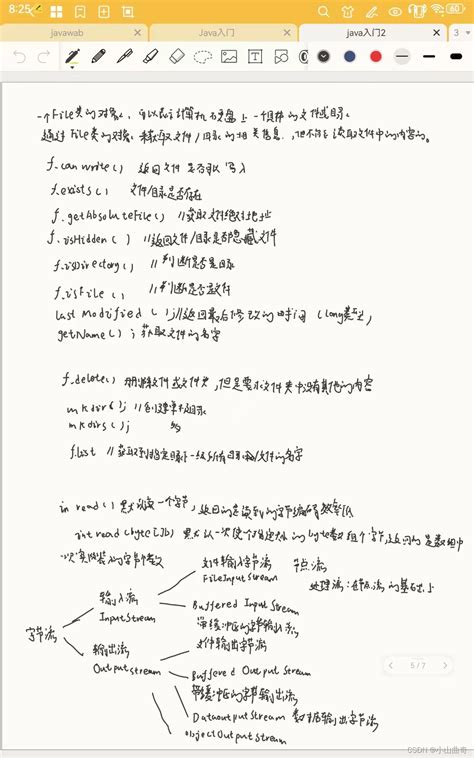 8:25
60
javawab
Java入门
java入门2
3
一个File类的对象,可以表示计算机硬盘上一个具体的文件或目录
通过File类的对象来获取文件/目录的相关信息,但不能读取文件中的内容的。
f.canwrite() 返回文件是否可以写入
f.exists() 文件/目录是否存在
f.getAbsoluteFile() //获取文件绝对地址
f.isHidden() //返回文件/目录是否隐藏文件
f.isDirectory() //判断是否是目录
f.isFile() //判断是否文件
last Modified();//返回最后修改的时间(long类型)
getName(); 获取文件的名字
f.delete() 删除文件或文件夹,但是要求文件夹中没有其他的内容
mkdir(); //创建单级目录
mkdirs(); 多
f.list //获取到指定目录下一级所有目录和文件的名字
in read() 默认读一个字节,返回的是读到的字节编码 效率低
int read(byte[]b) 默认一次使个指定大的byte数组个字节,返回的是数组中
一次实际装的字节个数
字节流
输入流
InputStream
文件输入字节流 节点流
FileInputStream
处理流:在节点流的基础上
Buffered InputStream
带缓冲区的字节输入流
输出流
Outputstream
文件输出字节流
Buffered Output Stream
带缓冲区的字节输出流
DataoutputStream 数据输出字节流
objectOutputStream
5/7
CSDN @小山曲哥